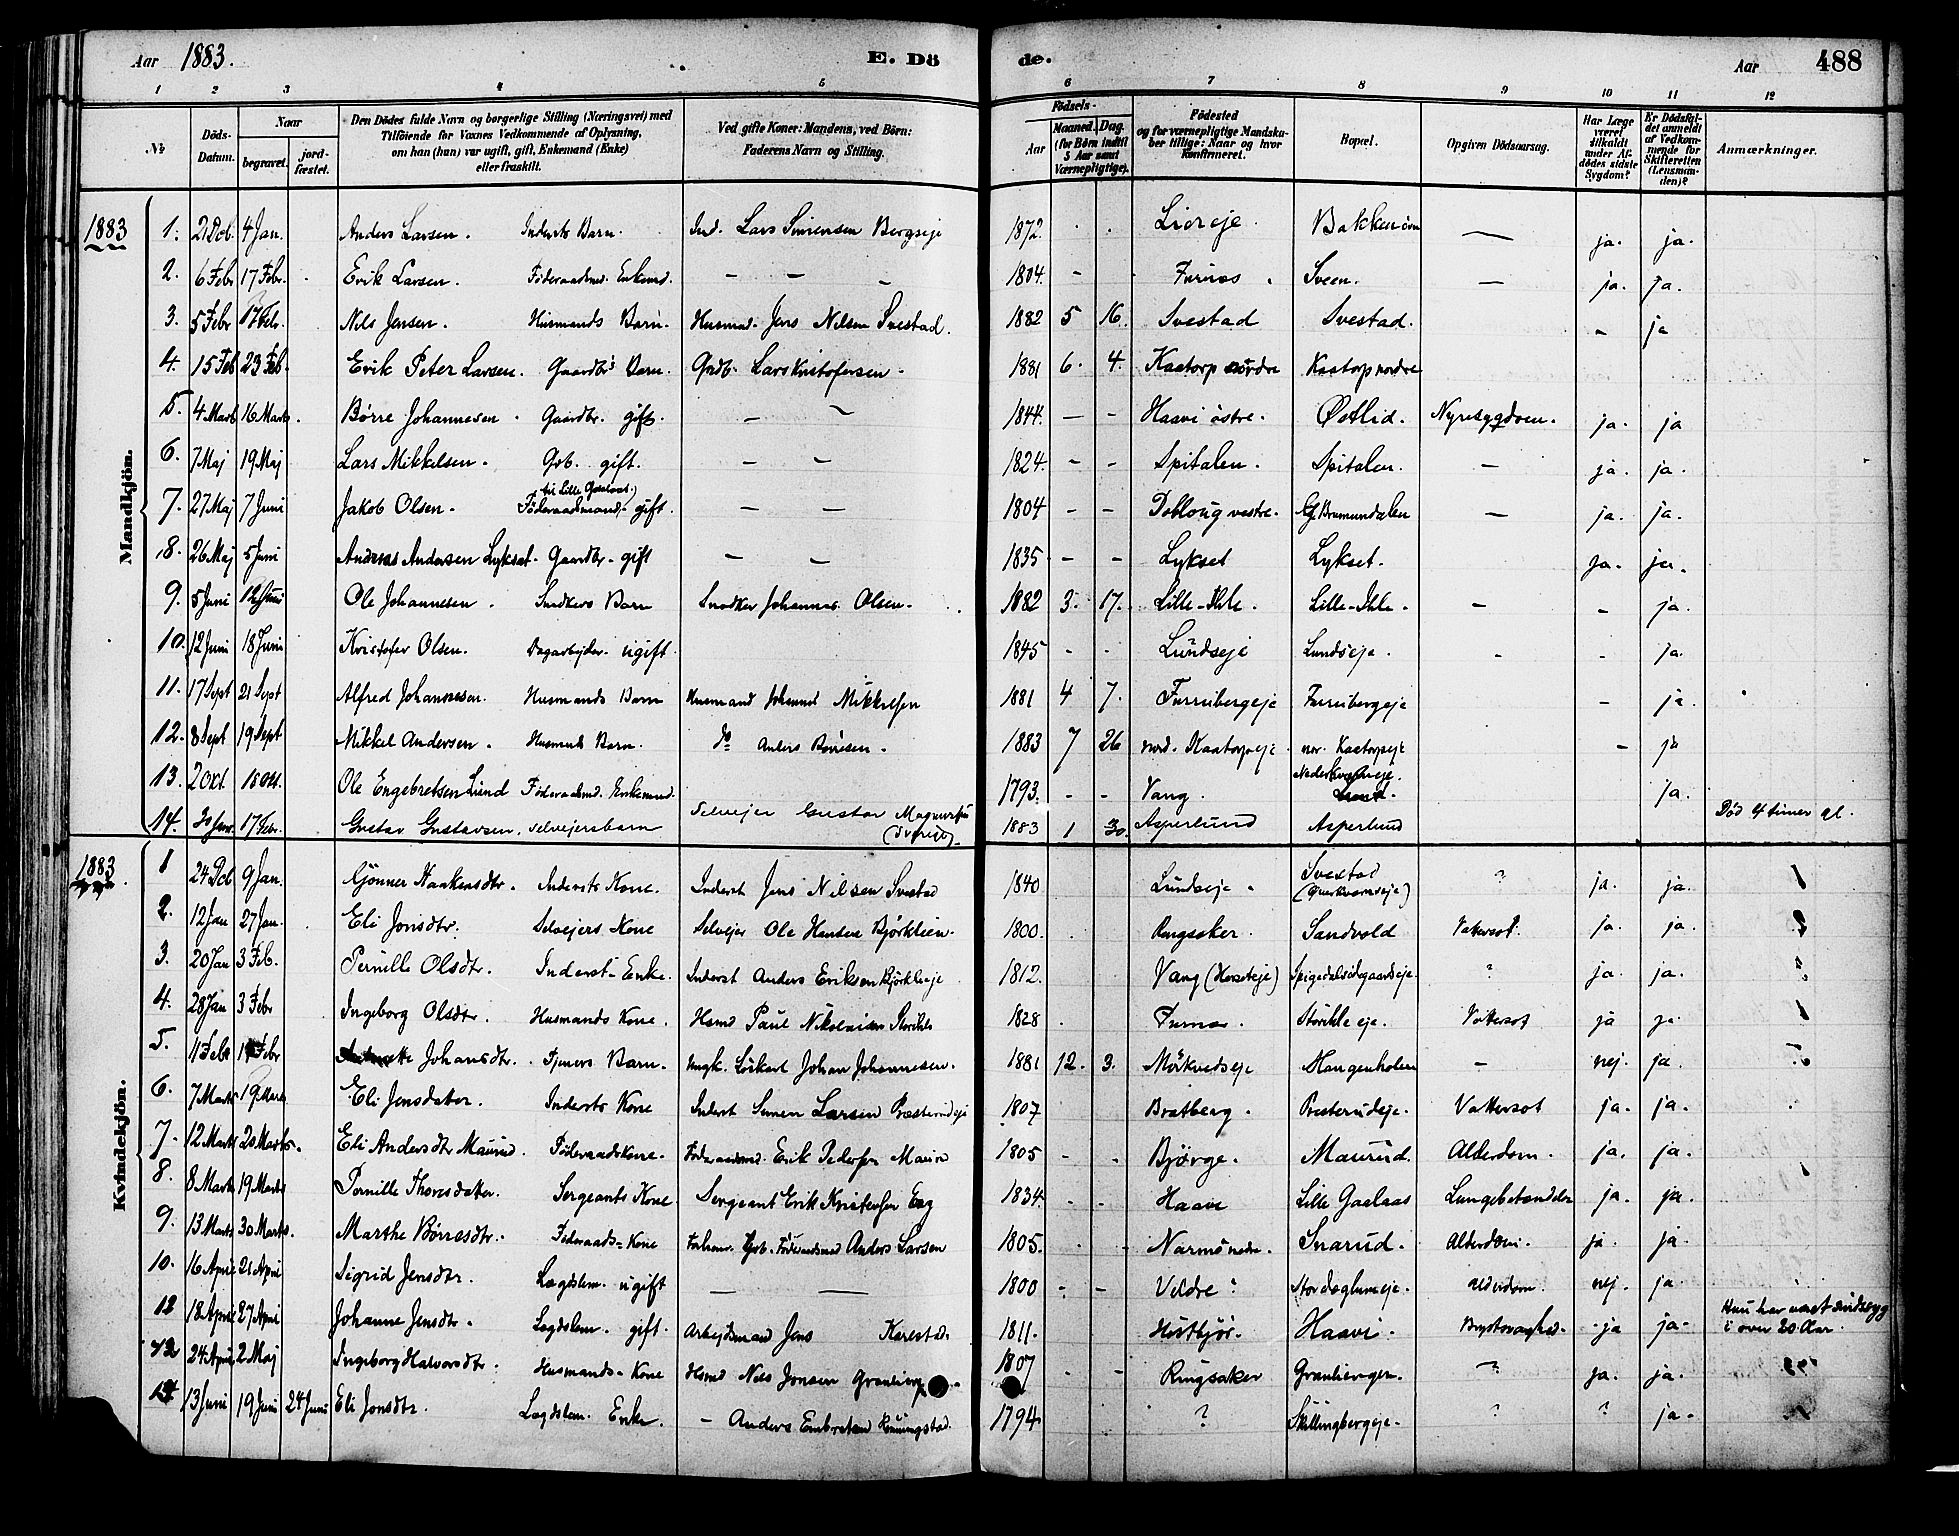 Aar 1883. E. Döde. Aar 488
1 2 3 4 5 6 7 8 9 10 11 12
No Döds-Datum. Naar begravet. jordfæstet. Den Dödes fulde Navn og borgerlige Stilling (Næringsvei) med Tilföiende for Voxnes Vedkommende af Oplysning, om han (hun) var ugift, gift, Enkemand (Enke) eller fraskilt. Ved gifte Koner: Mandens, ved Börn: Faderens Navn og Stilling. Födsels- Aar Maaned. Dag. (for Börn indtil 5 Aar samt Værnepligtige). Födested og for værnepligtige Mandskaber tillige: Naar og hvor konfirmeret. Bopæl. Opgiven Dödsaarsag. Har Læge været tilkaldt under Afdödes sidste Sygdom? Er Dödsfaldet anmeldt af Vedkommende for Skifteretten (Lensmanden)? Anmærkninger.
Mandkjön.
1883 1. 4 Jan. Anders Larsen. Inderts Barn. Ind. Lars Simensen Bergseje 1872. ja. ja.
2. 6 Febr 17 Febr. Erik Larsen. Föderaadsmd. Enkemd. — — — 1804. — Furnes. Sveen. — ja. ja.
3. 5 Febr 17 Febr. Nils Jensen. Husmands Barn. Husmd. Jens Nilsen Svestad. 1882 5 16. Svestad Svestad. – ja
4. 15 Feb 23 Feb. Erik Peter Larsen. Gaardbr's Barn. Grdb. Lars Kristofersen – 1881 6. 4. Kaatorp nordre Kaatorp nordre
5. 4 Marts 16 Marts. Börre Johannesen. Gaardbr. gift. — — 1844. — – Haavi östre. Østlid. Nyresygdom. ja. ja
6. 7 Maj 19 Maj Lars Mikkelsen. Grb. gift. — — 1824. – – Spitalen. Spitalen. – ja. ja.
7. 27 Maj 7 Juni Jakob Olsen. Föderaadsmand. gift. — — 1804 – – Dobloug vestre. Brumundalen — ja. ja.
8. 26 Maj 5 Juni Andreas Andersen Lykset. Gaardbr. gift — — 1835 – – Lykset Lykset. ja. ja.
9. 5 Juni 12 Juni Ole Johannesen. Snedkers Barn Snedker Johannes Olsen. 1882 3. 17. Lille-Ihle. Lille-Ihle. – – ja.
10. 12 Juni 18 Juni Kristofer Olsen. Dagarbejder. ugift. 1845 – – Lundseje Lundseje. – – ja.
11. 17 Sept 21 Sept Alfred Johannesen. Husmands Barn Husmand Johannes Mikkelsen 1881 4 7. Furubergeje Furubergeje – ja.
12. 8 Sept 19 Sept Mikkel Andersen. Husmands Barn. do Anders Börresen. 1883 7 26 nord. Kaatorpseje nor. Kaatorpseje – ja
13. 2 Okt. 18 Okt. Ole Engebretsen Lund Föderaadsmd. Enkemd. 1793. – – Vang. ja.
14. 17 Febr. Gustav Gustavsen. selvejersbarn Selvejer Gustav Magnussen 1883 1 30. Asperlund Asperlund Död 4 timer gl.
Kvindekjön.
1883 1 9 Jan. Gjönner Haakensdtr. Inderts Kone. Inderst Jens Nilsen Svestad 1840 Lundseje. Svestad ? ja. ja.
2. 12 Jan 27 Jan. Eli Jonsdtr. Selvejers Kone Selvejer Ole Hansen Björklien. 1800. Ringsaker. Sandvold Vattersot. ja. ja.
3. 20 Jan 3 Feb. Pernille Olsdtr. Inderst-Enke. Inderst Anders Eriksen Björklieeje 1812. Vang ? ja. ja.
4. 28 Jan 3 Febr Ingeborg Olsdtr. Husmands Kone. Hsmd Paul Nikolaisen Storihle 1828. Furnes. Storihle eje. Vattersot ja ja
5. 11 Febr Febr Johansdtr. Tjeners Barn. Ungk. Johan Johannesen. 1881 12. 3. Mörkvedseje – nej. ja.
6. 7 Marts 19 Marts Eli Jensdatter. Inderts Kone Inderst Simen Larsen Presterudeje 1807 Bratberg. Presterudeje. Vattersot ja. ja.
7. 12 Marts 20 Marts. Eli Andersdtr Maurud. Föderaadskone. Föderaadsmd. Erik Pedersen Maurud 1805 – Bjørge. Maurud. Alderdom. ja. ja.
8. 8 Marts 19 Marts Pernille Thoresdatter. Sergeants Kone Sergeant Erik Kristensen 1834. Haave Lille Gaalaas Lungebetændelse ja. ja.
9. 13 Marts 30 Marts. Marthe Börresdtr. Föderaads-Kone Föderaadsmd Anders Larsen 1805. Narmo nedre. Snarud. Alderdom. ja. ja.
10. 16 April 21 April Sigrid Jensdtr. Lægdslem. ugift — — 1800 – – Veldre? Alderdom. nej. ja.
12 18 April 27 April Johanne Jensdtr. Lægdslem. gift. Arbejdsmand Jens Karestad. 1811. Höstbjör. Haavi. ja ja. Hun har været sindssyg i over 20 Aar.
24 April 2 Maj Ingeborg Halvorsdtr. Husmands-Kone Hsmd Nils Jonsen 1807 Ringsaker ? ja. ja.
13 Juni 19 Juni 24 Juni Eli Jonsdtr. Lægdslem. Enke. – Anders Embretsen 1794 ? Skillingbergeje. ? ? ja.